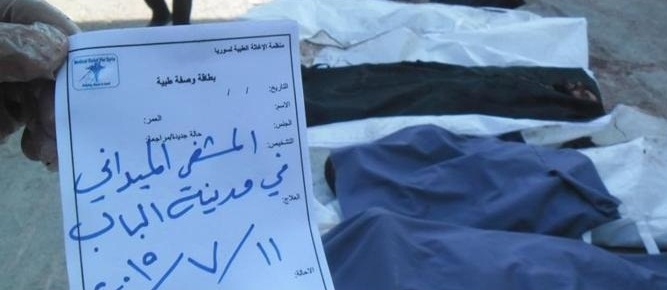 منظمة الإغاثة الطبية لسوريا
Medical Relief for Syria
بطاقة وصفة طبية
التاريخ: / /
الاسم:
الجنس: العمر:
التشخيص: حالة جديدة/مراجعة:
المشفى الميداني
في مدينة الباب
العلاج:
٢٠١٥/٧/١١
الاحالة: